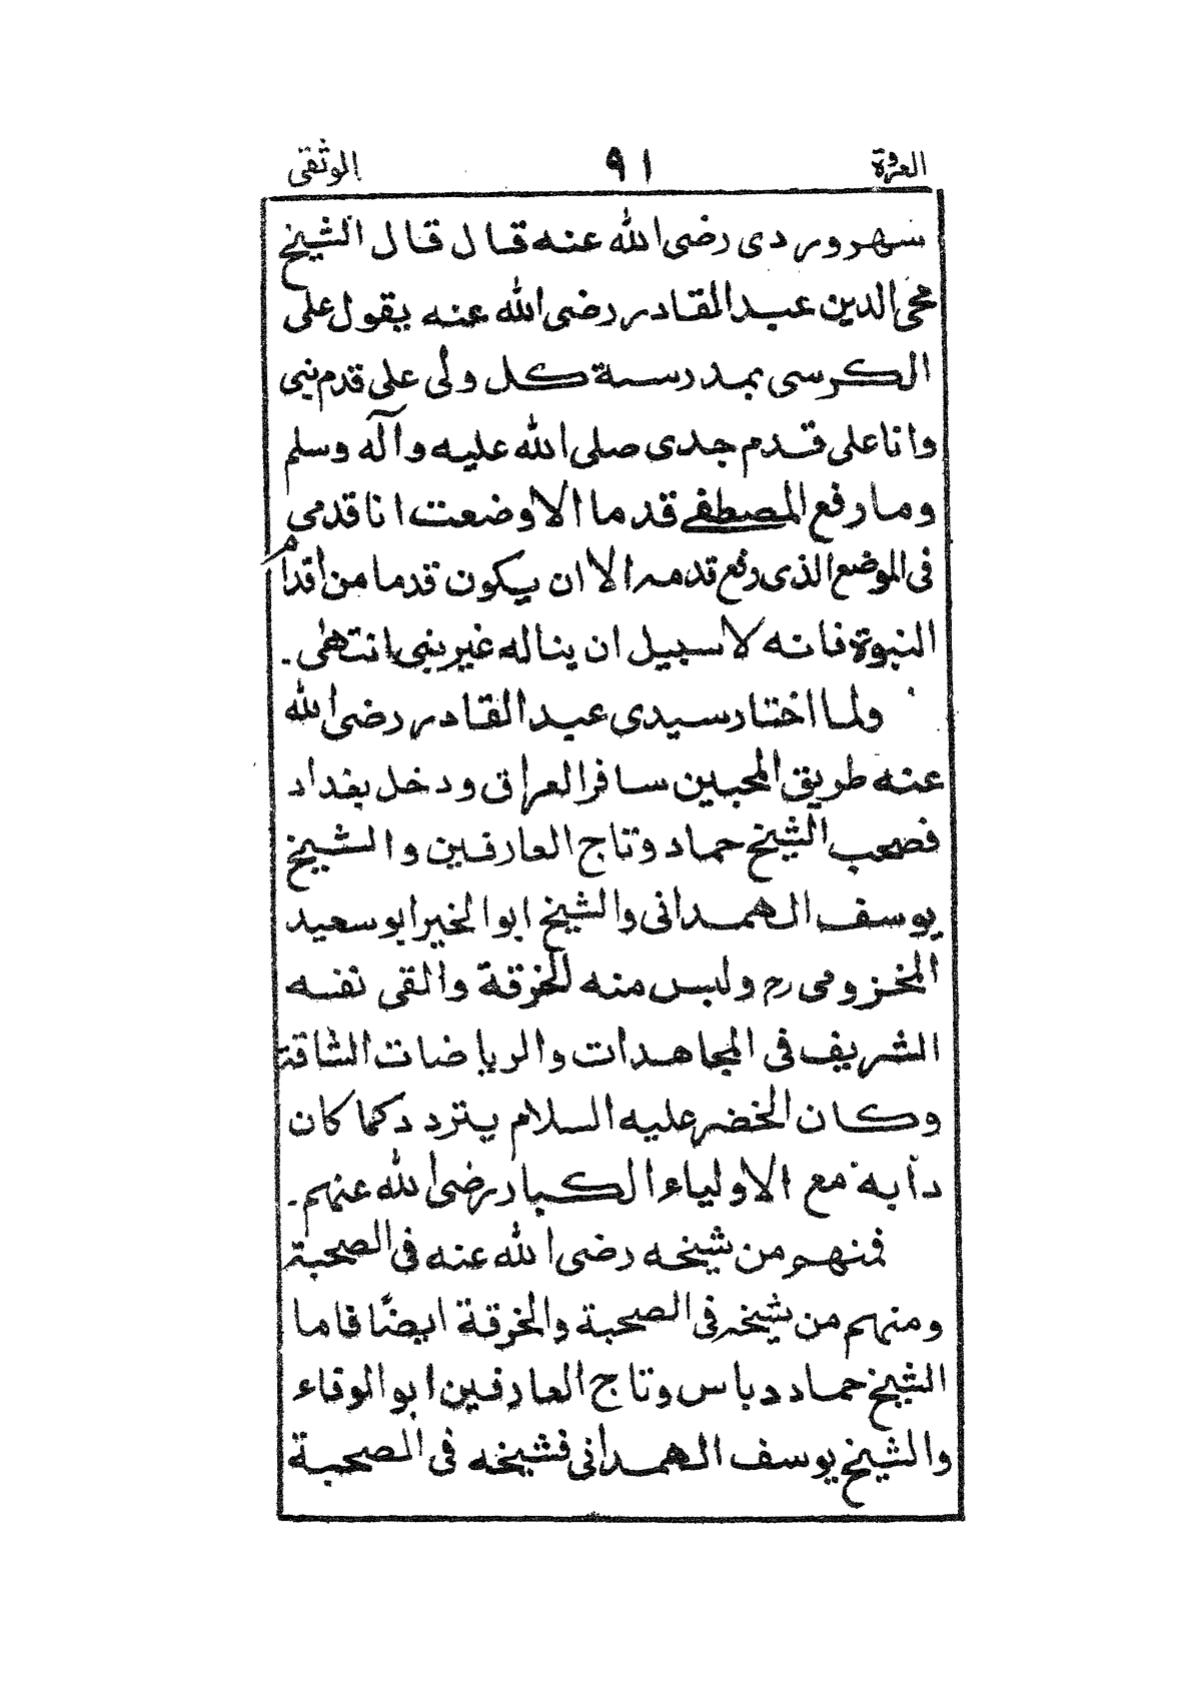 العروة ٩١ الوثقى
سهروردى رضى الله عنه قال قال الشيخ
محى الدين عبد القادر رضى الله عنه يقول على
الكرسى بمدرسة كل ولى على قدم نبى
وانا على قدم جدى صلى الله عليه وآله وسلم
وما رفع المصطفى قدما الا وضعت انا قدمى
فى الموضع الذى رفع قدمه الا ان يكون قدما من اقدام
النبوة فانه لا سبيل ان يناله غير نبى انتهى .
ولما اختار سيدى عبد القادر رضى الله
عنه طريق المحبين سافر العراق ودخل بغداد
فصحب الشيخ حماد وتاج العارفين والشيخ
يوسف الهمدانى والشيخ ابو الخير ابو سعيد
المخزومى رح ولبس منه الخرقة والقى نفسه
الشريف فى المجاهدات والرياضات الشاقة
وكان الخضر عليه السلام يتردد كما كان
دأبه مع الاولياء الكبار رضى الله عنهم .
فمنهم من شيخه رضى الله عنه فى الصحبة
ومنهم من شيخه فى الصحبة والخرقة ايضًا فاما
الشيخ حماد دباس وتاج العارفين ابو الوفاء
والشيخ يوسف الهمدانى فشيخه فى الصحبة